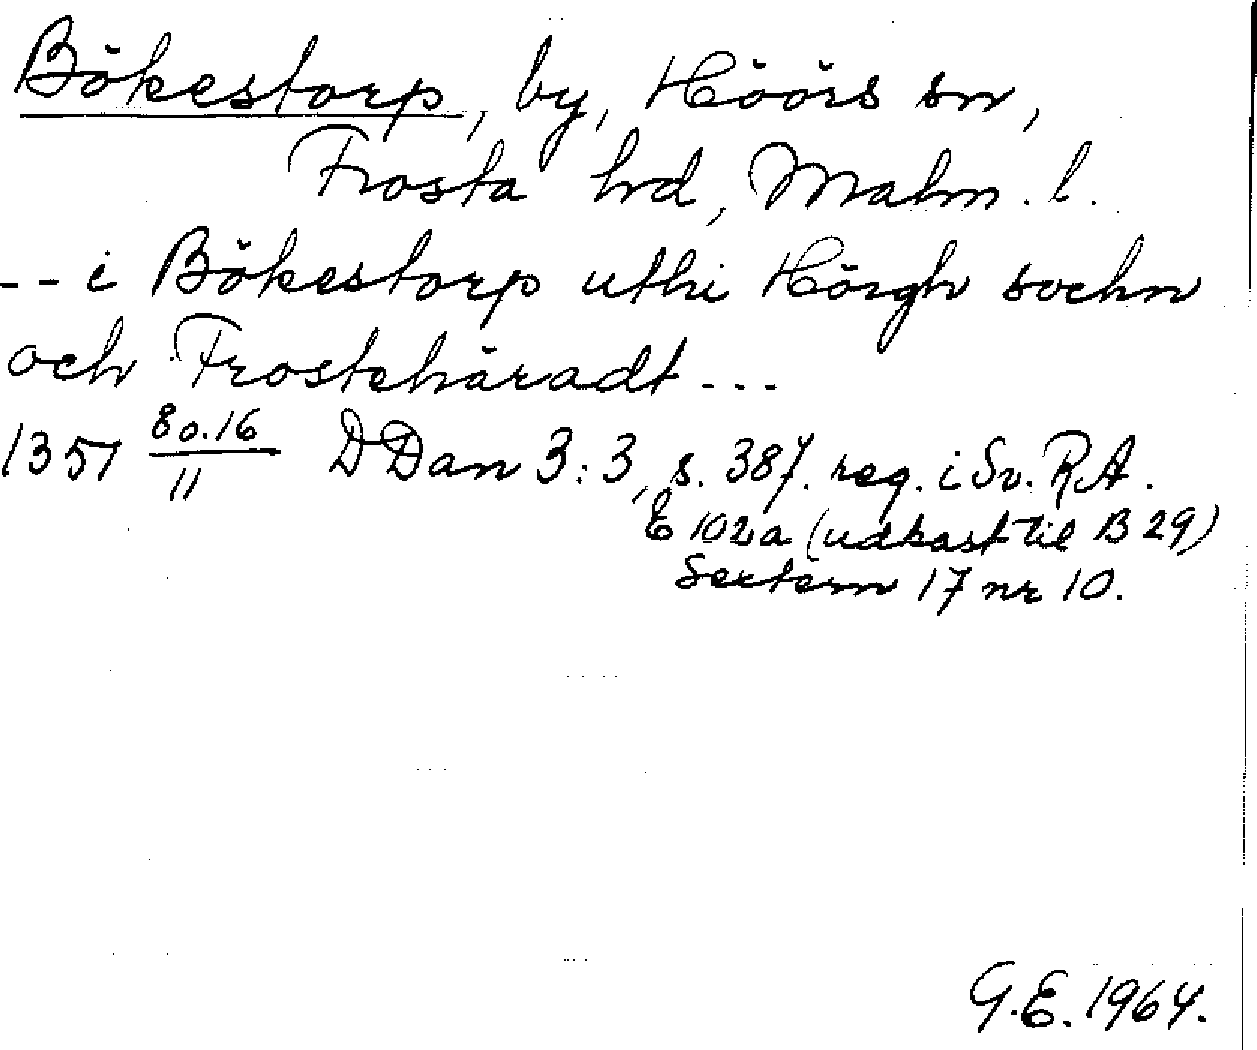 Bökestorp, by, Höörs sn,
Frosta hd, Malm. l.
-- i Bökestorp uthi Hörgh sochn
och Frostehäradt ---
1357 8 o. 16/11 DDan 3:3, s. 387. reg. i Sv. RA.
E 102a (udkast til B 29)
Sextern 17 nr 10.
G.E. 1964.